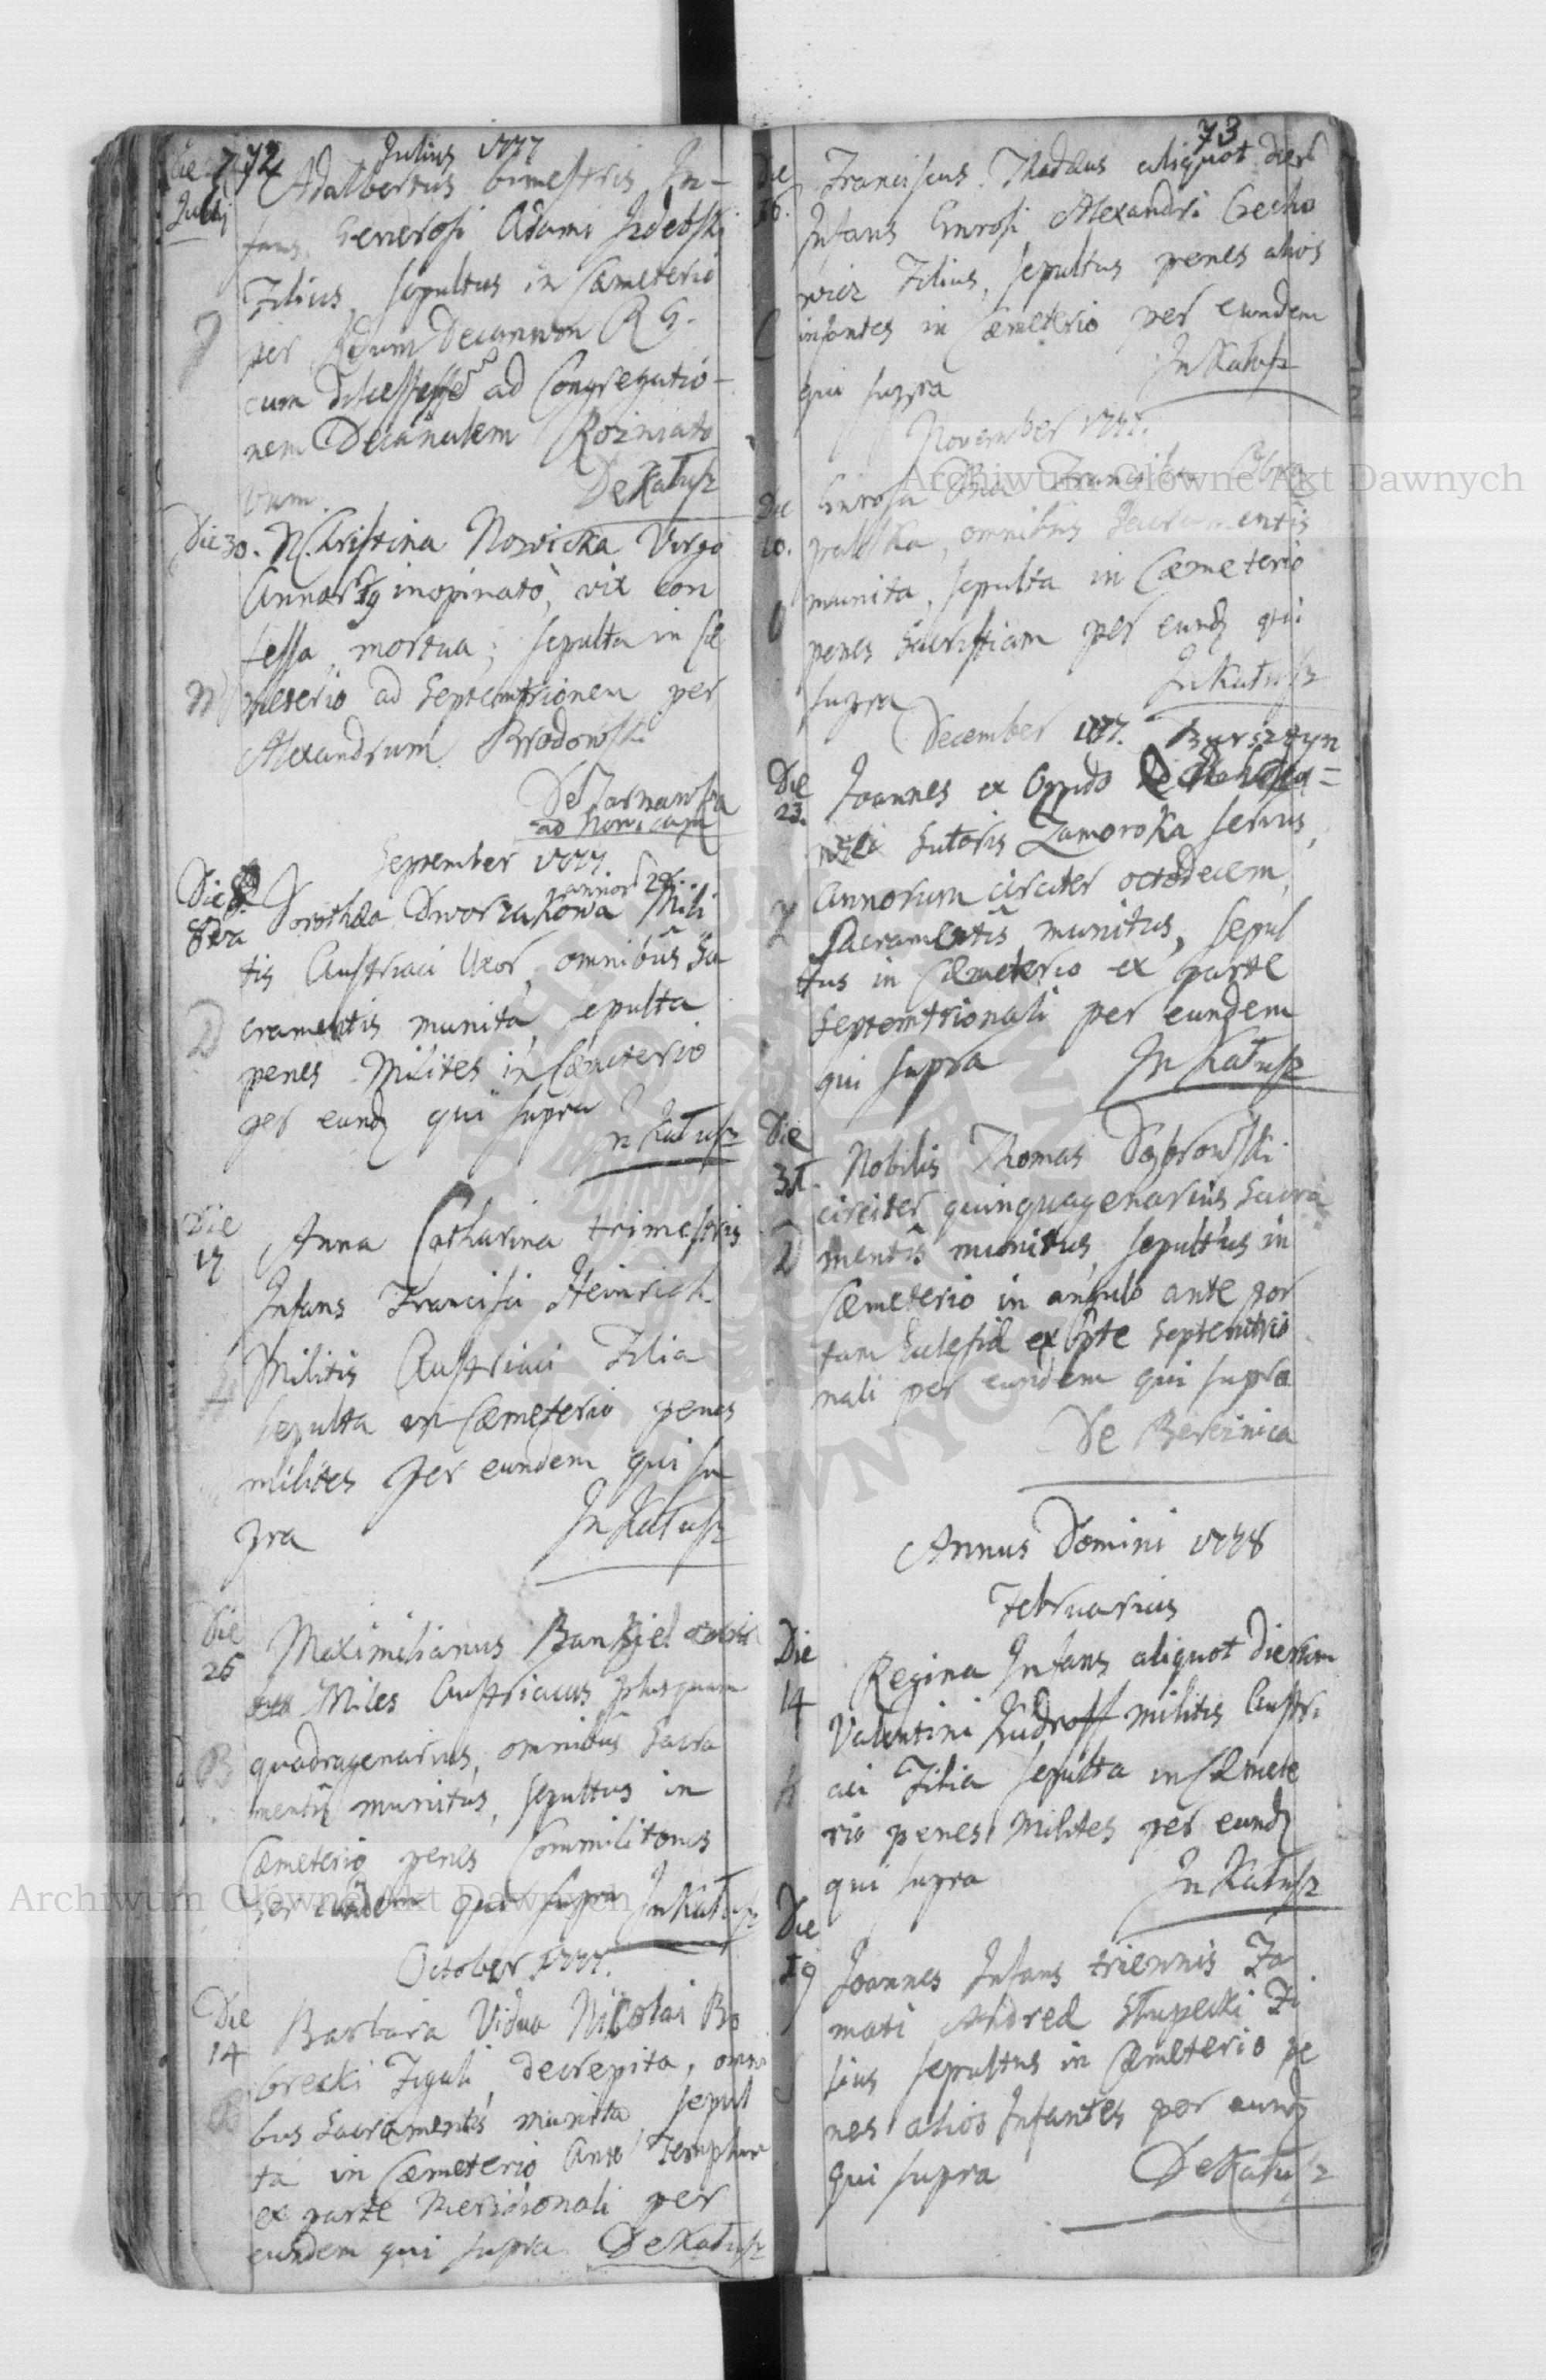 72
Julius 1777
Die
Julij
Adalbertus bimestris In-
fans Generosi Adami Izdebski
Filius, sepultus in Cæmeterio
per Decanum R G.
cum ad Congregatio-
nem Decanalem Rozniato
vum.
De Kałusz
Die 30. N. Christina Nowicka Virgo
Annor 19 inopinatò, vix con
fessa, mortua; sepulta in Cæ
N meterio ad Septemtrionem per
Alexandrum Brodowski
De Tarnawka
ad Nowicam
September 1777
annor
Die 8va Dorothæa Dworzakowa Mili
tis Austriaci Uxor, omnibus Sa
D cramentis munita, sepulta
penes Milites in Cæmeterio
per eund qui supra
In Kałusz
Die
17
Anna Catharina trimestris
Infans Francisci Heinrich
H Militis Austriaci Filia
sepulta in Cæmeterio penes
milites per eundem qui su
pra In Kałusz
Die
26
Maximilianus
Miles Austriacus plusquam
B quadragenarius, omnibus Sacra
mentis munitus, sepultus in
Cæmeterio penes Commilitones
per eundem qui supra In Kałusz
October 1777.
Die
14
Barbara Vidua Nicolai Bo
brecki Figuli, decrepita, omni
B bus Sacramentis munita, sepul
ta in Cæmeterio Ante Templum
ex parte Meridionali per
eundem qui supra De Kałusz
73
Die
16.
Franciscus Thadæus aliquot dier
Infans Gnrosi Alexandri Czecho
wicz Filius, sepultus penes alios
C infantes in Cæmeterio per eundem
qui supra
In Kałusz
November 1777.
Die
10.
Gnrosa Francisca
omnibus Sacramentis
munita, sepulta in Cæmeterio
penes Sacristiam per eund qui
supra
In Kałusz
December 1777. Bursztyn
Die
23.
Joannes ex Oppido
Sutoris Zamoroka servus,
Annorum circiter octodecem,
Z Sacramentis munitus, sepul
tus in Cæmeterio ex parte
Septemtrionali per eundem
qui supra In Kałusz
Die
31.
Nobilis Thomas Dąbrowski
circiter quinquagenarius Sacra
D mentis munitus, sepultus in
Cæmeterio in angulo ante por
tam Eclesiæ ex Pte Septemtrio
nali per eundem qui supra
De Bereznica
Annus Domini 1778
Februarius
Die
14
Regina Infans aliquot dierum
Valentini militis Austri
aci Filia sepulta in Cæmete
rio penes Milites per eund
qui supra In Kałusz
Die
19
Joannes Infans triennis Fa
mati Andreæ Słupecki Fi
lius sepultus in Cæmeterio pe
nes alios Infantes per eund
qui supra De Kałusz
Archiwum Główne Akt Dawnych
Archiwum Główne Akt Dawnych